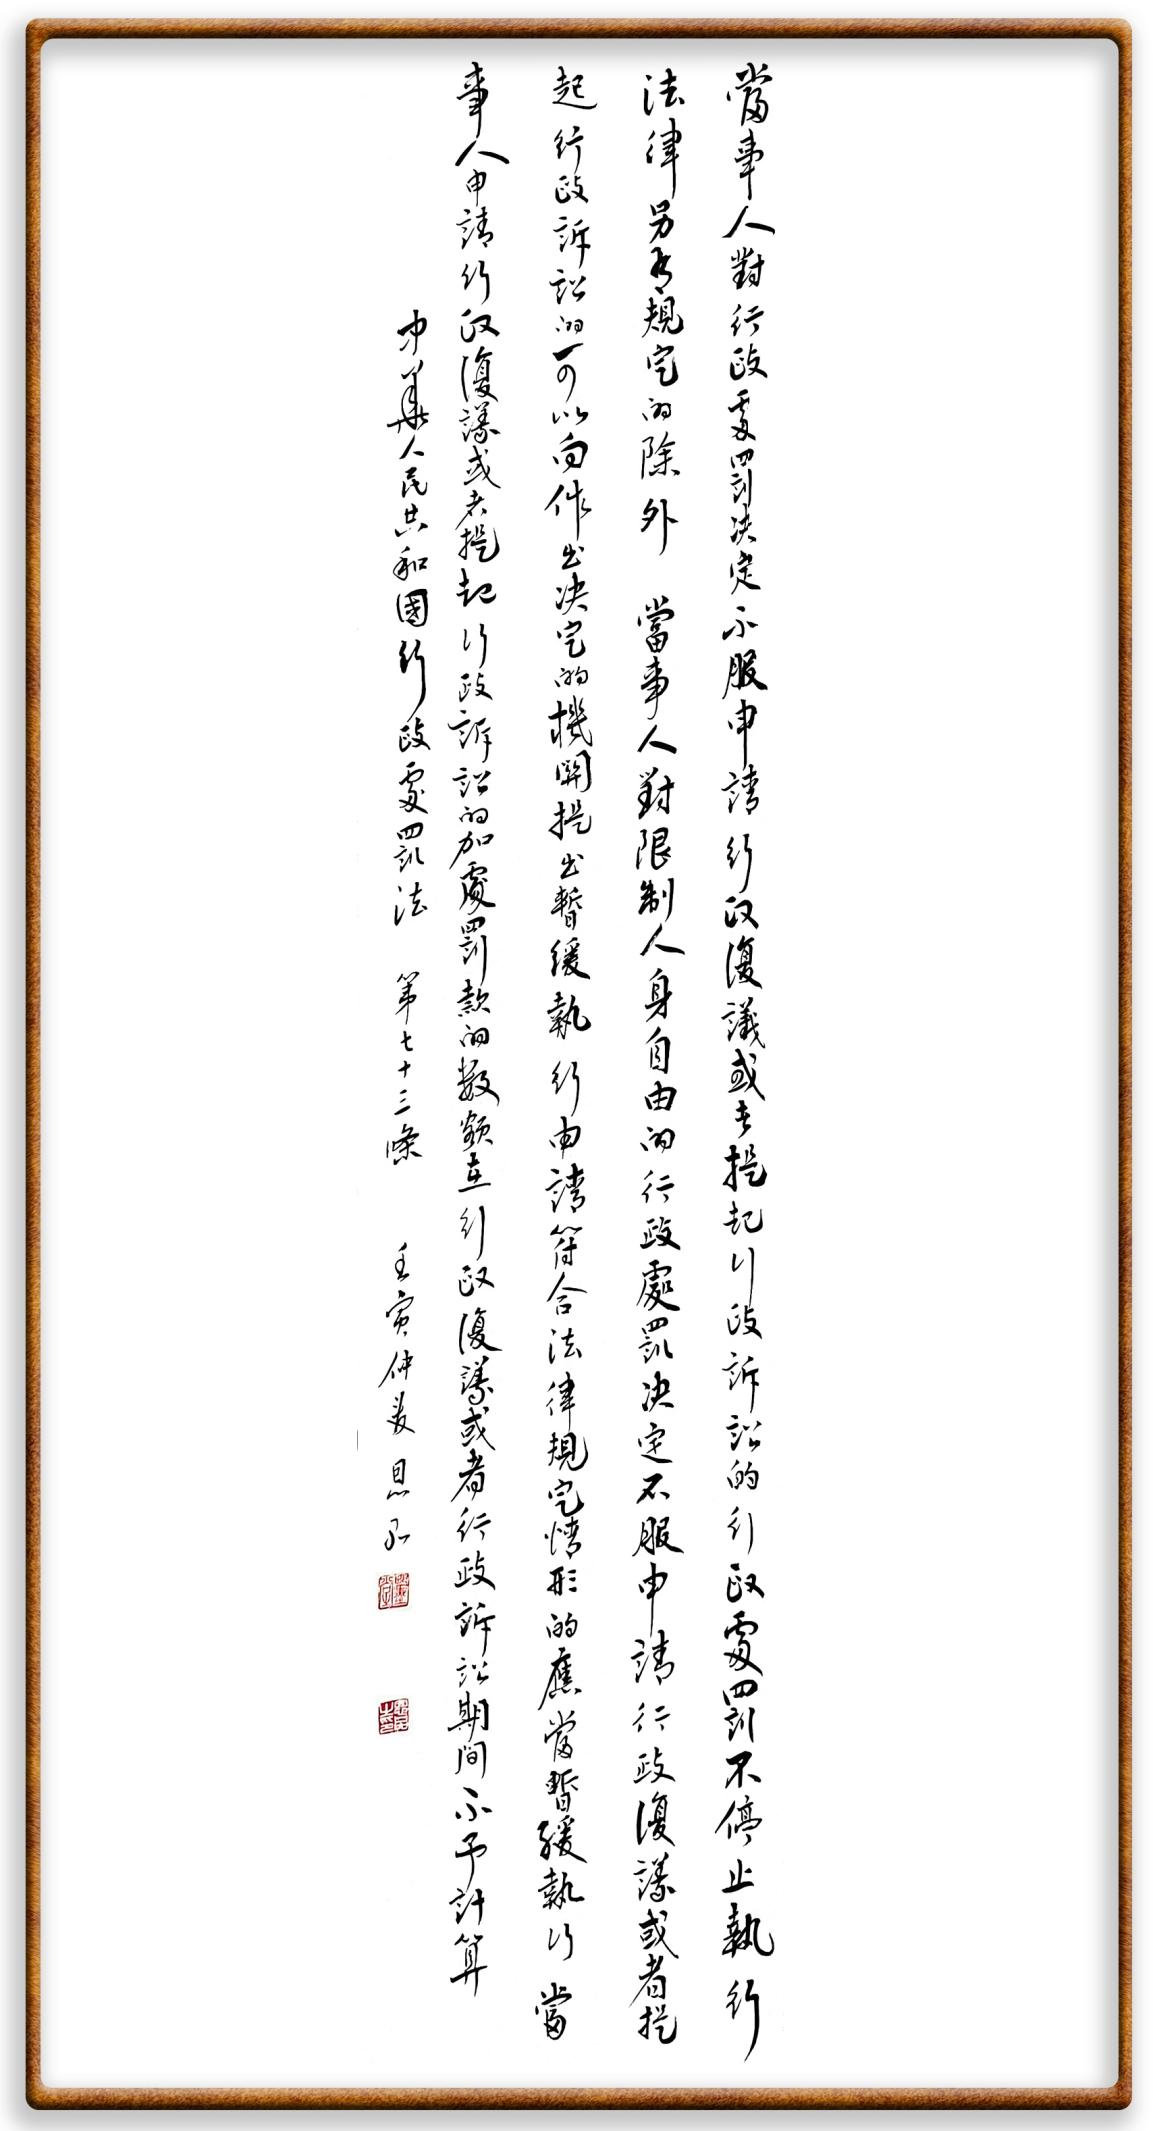 當事人對行政處罰决定不服申請行政復議或者提起行政訴訟的行政處罰不停止執行
法律另有規定的除外 當事人對限制人身自由的行政處罰决定不服申請行政復議或者提
起行政訴訟的可以向作出决定的機關提出暫緩執行申請符合法律規定情形的應當暫緩執行 當
事人申請行政復議或者提起行政訴訟的加處罰款的数額在行政復議或者行政訴訟期間不予計算
中華人民共和國行政處罰法 第七十三條 壬寅仲夏